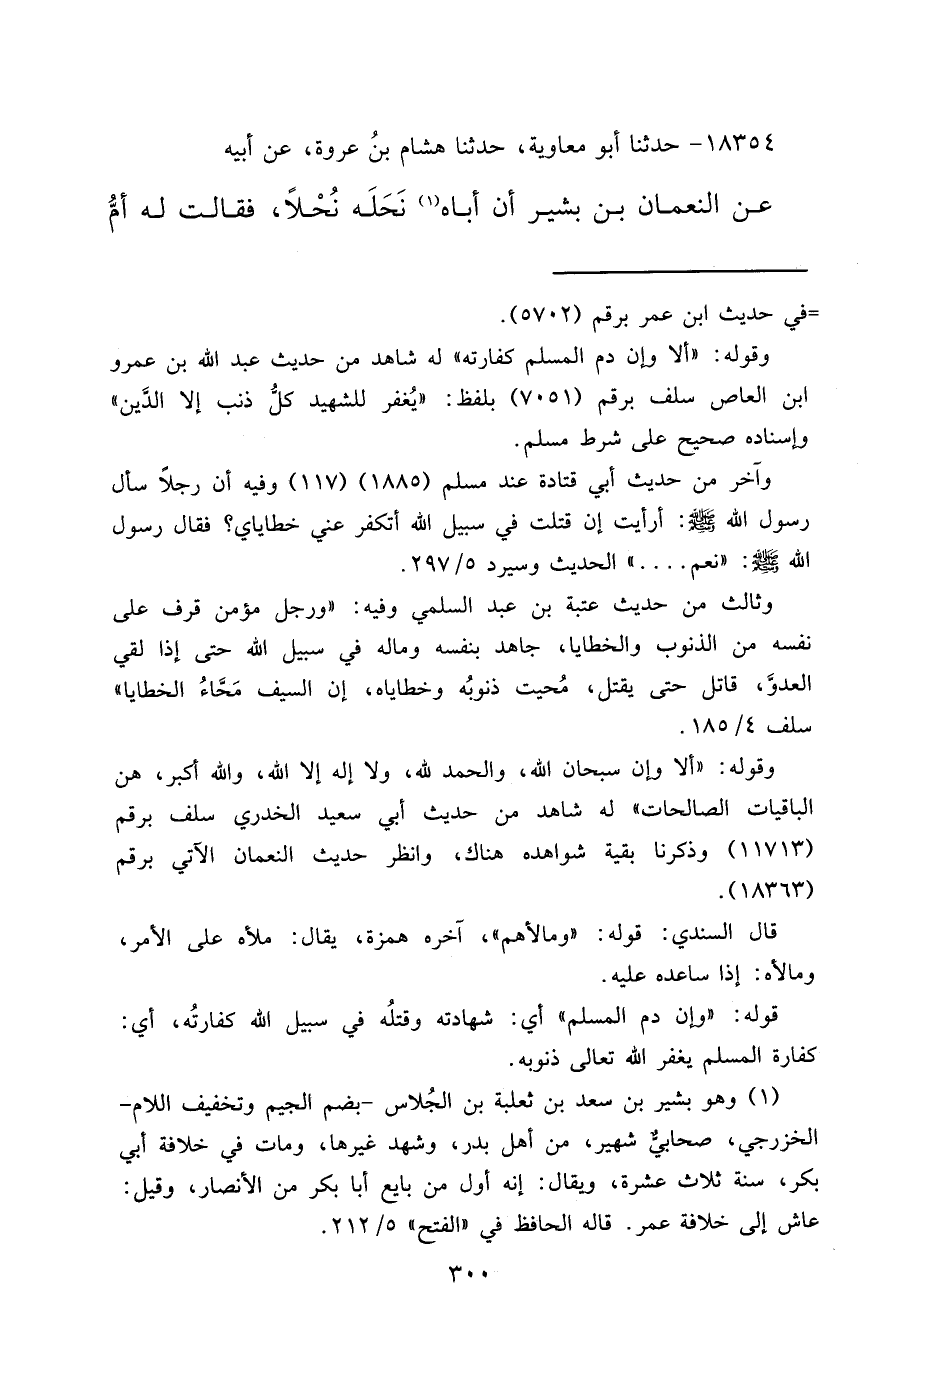 ١٨٣٥٤- حدثنا أبو معاوية، حدثنا هشام بنُ عروة، عن أبيه
عـن النعمـان بـن بشيـر أن أبـاه(١) نَحَلَـه نُحْـلاً، فقـالـت لـه أمُّ
=في حديث ابن عمر برقم (٥٧٠٢).
وقوله: «ألا وإن دم المسلم كفارته» له شاهد من حديث عبد الله بن عمرو
ابن العاص سلف برقم (٧٠٥١) بلفظ: «يُغفر للشهيد كلُّ ذنب إلا الدَّين»
وإسناده صحيح على شرط مسلم.
وآخر من حديث أبي قتادة عند مسلم (١٨٨٥) (١١٧) وفيه أن رجلاً سأل
رسول الله ﷺ: أرأيت إن قتلت في سبيل الله أتكفر عني خطاياي؟ فقال رسول
الله ﷺ: «نعم....» الحديث وسيرد ٢٩٧/٥.
وثالث من حديث عتبة بن عبد السلمي وفيه: «ورجل مؤمن قرف على
نفسه من الذنوب والخطايا، جاهد بنفسه وماله في سبيل الله حتى إذا لقي
العدوَّ، قاتل حتى يقتل، مُحيت ذنوبُه وخطاياه، إن السيف مَحَّاءُ الخطايا»
سلف ١٨٥/٤.
وقوله: «ألا وإن سبحان الله، والحمد لله، ولا إله إلا الله، والله أكبر، هن
الباقيات الصالحات» له شاهد من حديث أبي سعيد الخدري سلف برقم
(١١٧١٣) وذكرنا بقية شواهده هناك، وانظر حديث النعمان الآتي برقم
(١٨٣٦٣).
قال السندي: قوله: «ومالأهم»، آخره همزة، يقال: ملأه على الأمر،
ومالأه: إذا ساعده عليه.
قوله: «وإن دم المسلم» أي: شهادته وقتلُه في سبيل الله كفارتُه، أي:
كفارة المسلم يغفر الله تعالى ذنوبه.
(١) وهو بشير بن سعد بن ثعلبة بن الجُلاس -بضم الجيم وتخفيف اللام-
الخزرجي، صحابيٌّ شهير، من أهل بدر، وشهد غيرها، ومات في خلافة أبي
بكر، سنة ثلاث عشرة، ويقال: إنه أول من بايع أبا بكر من الأنصار، وقيل:
عاش إلى خلافة عمر. قاله الحافظ في «الفتح» ٢١٢/٥.
٣٠٠